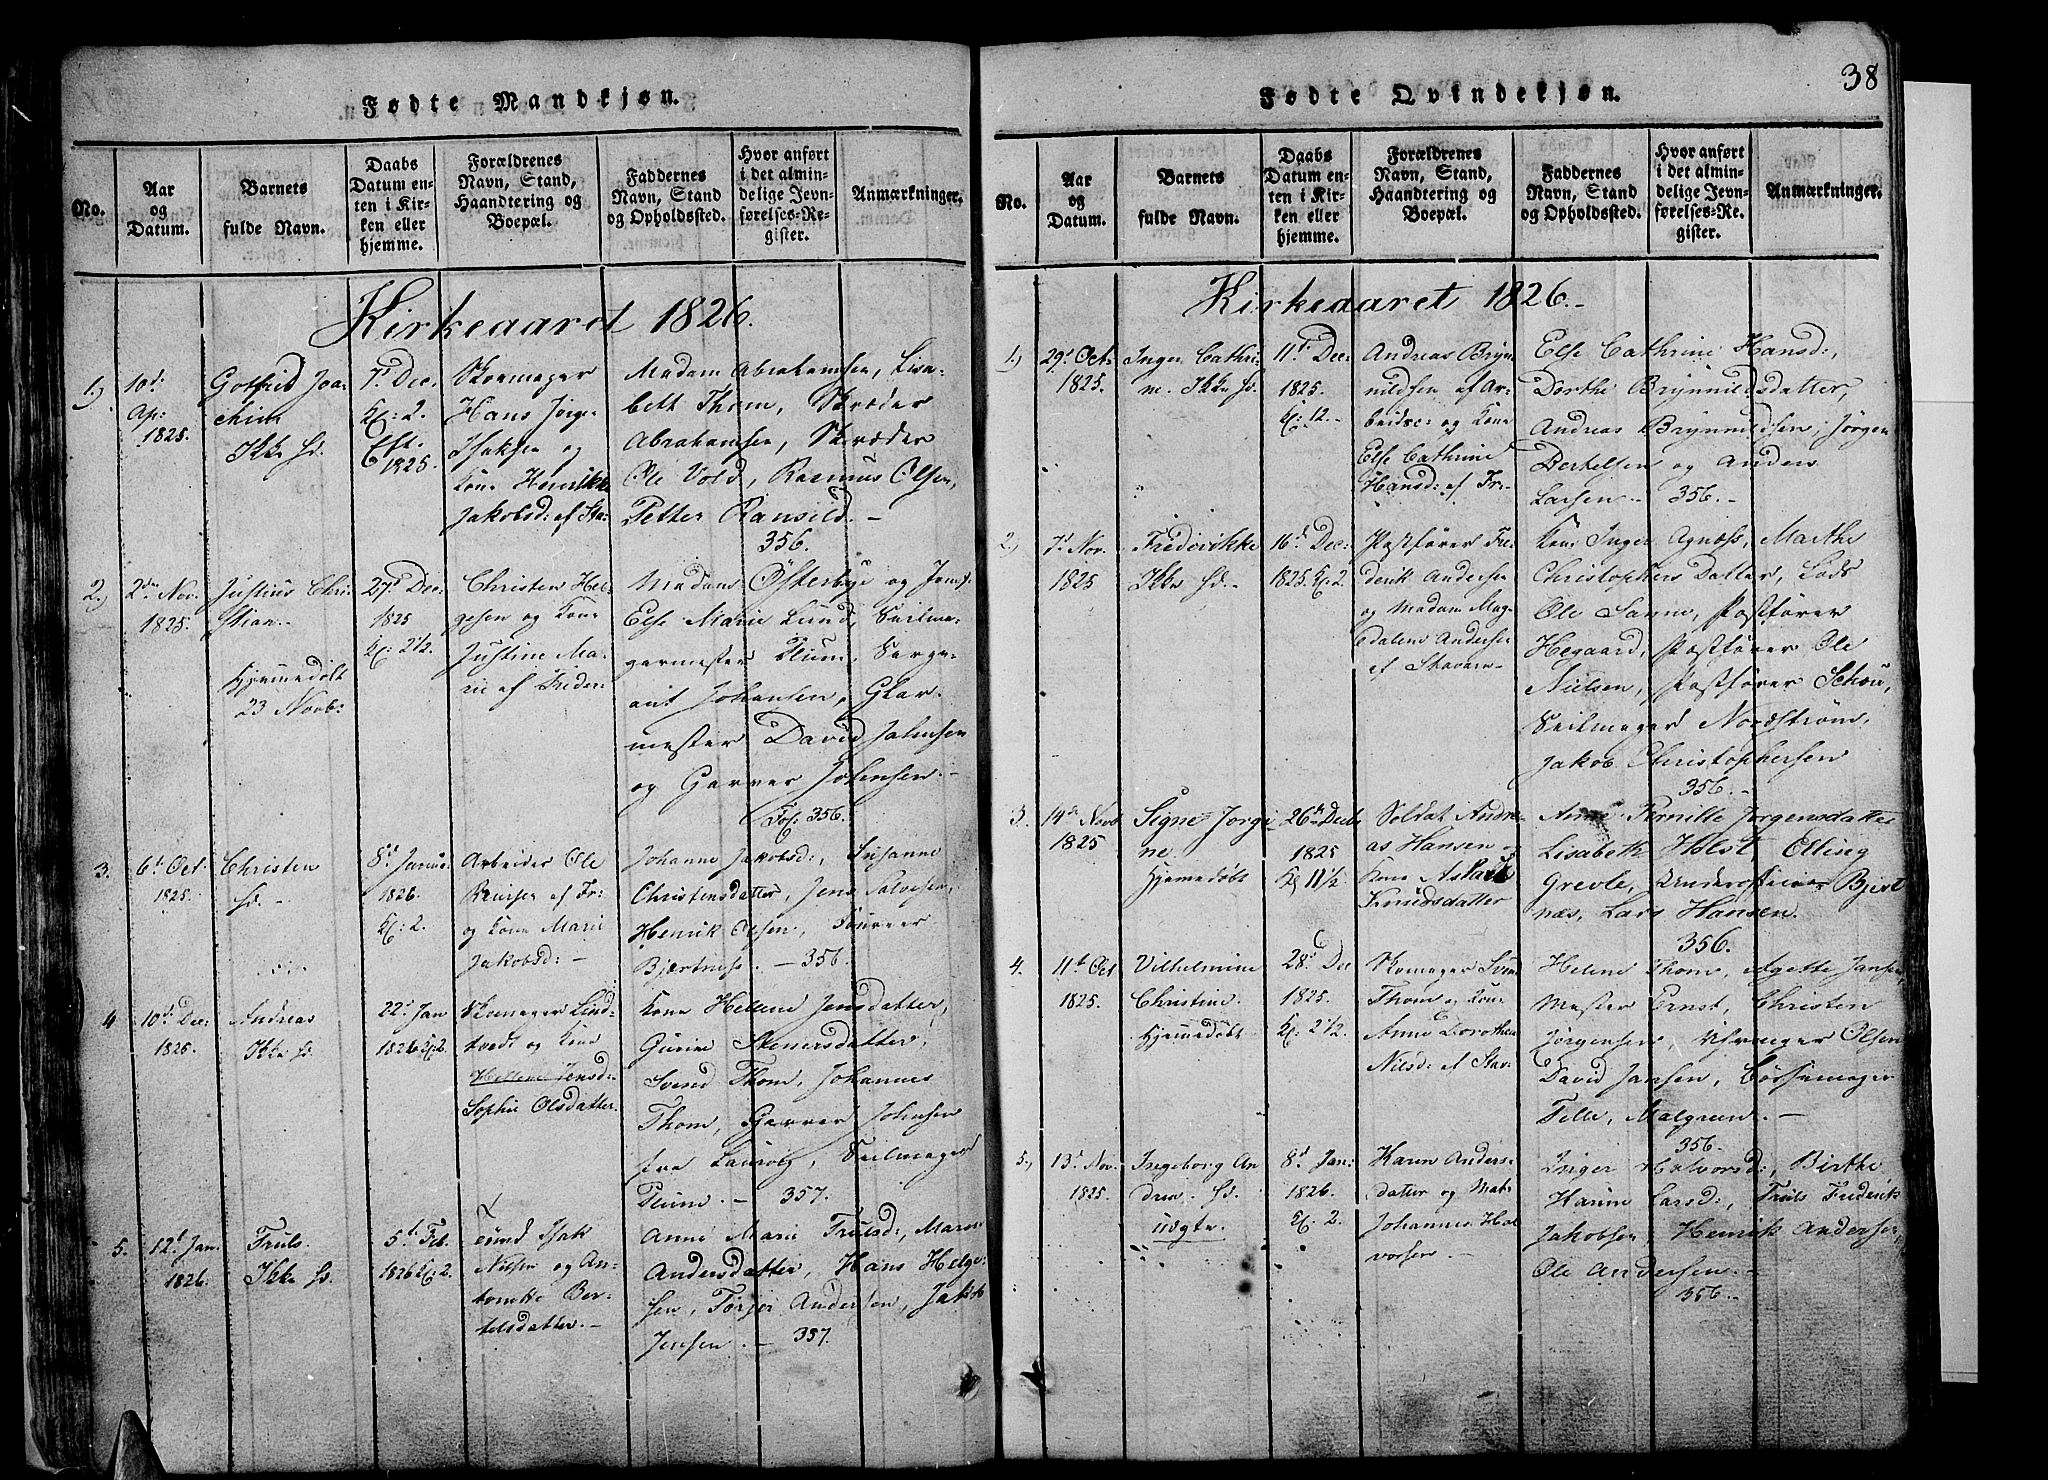 38
Fødte Mandkjøn.
No.
Aar
og
Datum.
Barnets
fulde Navn.
Daabs
Datum en-
ten i Kir-
ken eller
hjemme.
Forældrenes
Navn, Stand,
Haandtering og
Boepæl.
Faddernes
Navn, Stand
og Opholdssted.
Hvor anført
i det almin-
delige Jevn-
førelses-Re-
gister.
Anmærkninger.
Kirkeaaret 1826.
1.)
10d:
Ap:
1825.
Gotfried Joa-
chim
Ikke hd.
7d Dec.
Kl: 2.
Eft.
1825.
Skoemager
Hans Jørgen
Isaksen og
Kone Henrikke
Jakobsd: af Sta-
Madam Abrahamsen, Lisa-
beth Thom, Skræder
Abrahamsen, Skræder
Ole Vold, Rasmus Olsen,
Petter Ransild. -
356.
2.)
2den Nov.
1825.
Justius Chri-
stian.
Hjemmedøbt
23 Novb:
27d Dec:
1825
Kl: 2 1/2.
Christen Hel-
gesen og Kone
Justine Ma-
rie af Freder:
Madam Østerbye og Jomf.
Else Marie Lund, Seilma-
germester Plum, Serge-
ant Johansen, Glar-
mester David Johnsen
og Garver Johnsen. -
Fol: 356.
3.
6d Oct.
1825.
Christen
hd. -
8d Janu:
1826.
Kl: 2.
Arbeider Ole
af Fr:
og Kone Marie
Jakobsd: -
Johanne Jakobsd:, Susanne
Christensdatter, Jens Salvesen,
Henrik Olsen, Tourer
Bjertnes. - 356.
4
10d Dec:
1825.
Andreas
Ikke hd.
22d Jan
1826 Kl. 2.
Skomager Lind-
tvedt og Kone
Hellene Jensd:
Sophie Olsdatter.
Kone Hellene Jensdatter,
Gurine Stenersdatter,
Svend Thom, Johannes
Thom, Garver Johnsen
fra Laurvig, Seilmager
Plum. - 357.
5.
12d Jan.
1826.
Truls.
Ikke hd.
5d Feb.
1826 Kl. 2.
Isak
Nilsen og An-
tonette Ber-
telsdatter. -
Anne Marie Trulsd:, Maren
Andersdatter, Hans Helge-
sen, Torjer Andersen, Jakob
Jensen. - 357.
Fødte Qvindekjøn.
No.
Aar
og
Datum.
Barnets
fulde Navn.
Daabs
Datum en-
ten i Kir-
ken eller
hjemme.
Forældrenes
Navn, Stand,
Haandtering og
Boepæl.
Faddernes
Navn, Stand
og Opholdssted.
Hvor anført
i det almin-
delige Jevn-
førelses-Re-
gister.
Anmærkninger.
Kirkeaaret 1826.-
1.)
29d Oct.
1825.
Inger Cathri-
ne. Ikke hd.
11d Dec:
1825.
Kl: 12.
Andreas Bryn-
nildsen af Ar-
beider og Kone
Else Cathrine
Hansd: af Fre-
Else Cathrine Hansd:,
Dorthe Brynnildsdatter,
Andreas Brynnildsen, Jørgen
Bertelsen og Anders
Larsen. 356. -
2.)
7d Nov.
1825
Frederikke
Ikke hd. -
16d Dec:
1825. Kl. 2.
Postfører Fre-
derik Andersen
og Madam Mag-
dalene Andersen
af Stavern -
Kone Inger Agnæss, Marthe
Christophers Datter, Lods
Ole Sanne, Postfører
Hegaard, Postfører Ole
Nielsen, Postfører Schou,
Seilmager Nordstrøm,
Jakob Christophersen
356. -
3.
14de Novb
1825
Signe Jorgi-
ne
Hjemedøbt
26de Decb
1825
Kl 11 1/2
Soldat Andre-
as Hansen og
Kone
Knudsdatter
Anne Pernille Jorgensdatter
Lisabeth Holst, Elling
Grevle, Underofficeer Bjert-
næs, Lars Hansen.
356.
4.
11d Oct
1825.
Vilhelmine
Christine.
Hjemmedøbt
28d Dec
1825.
Kl: 2 1/2.
Skomager Svend
Thom og Kone
Anne Dorothea
Nilsd: af Stav-
Helene Thom, Agette Jansen,
Mester Ernst, Christen
Jørgensen, Olsen
David Jansen, Børsemager
Tille, Malgreen. -
356.
5.,
13d Nov.
1825.
Ingeborg An-
drea. hd.
uægte.
8d Jan:
1826.
Kl. 2.
Karen Anders-
datter og Mat.
Johannes Hal-
vorsen. -
Inger Halvorsd:, Birthe
Karine Larsd:, Truls Frederik
Jakobsen, Henrik Andersen,
Ole Andersen. -
356. -